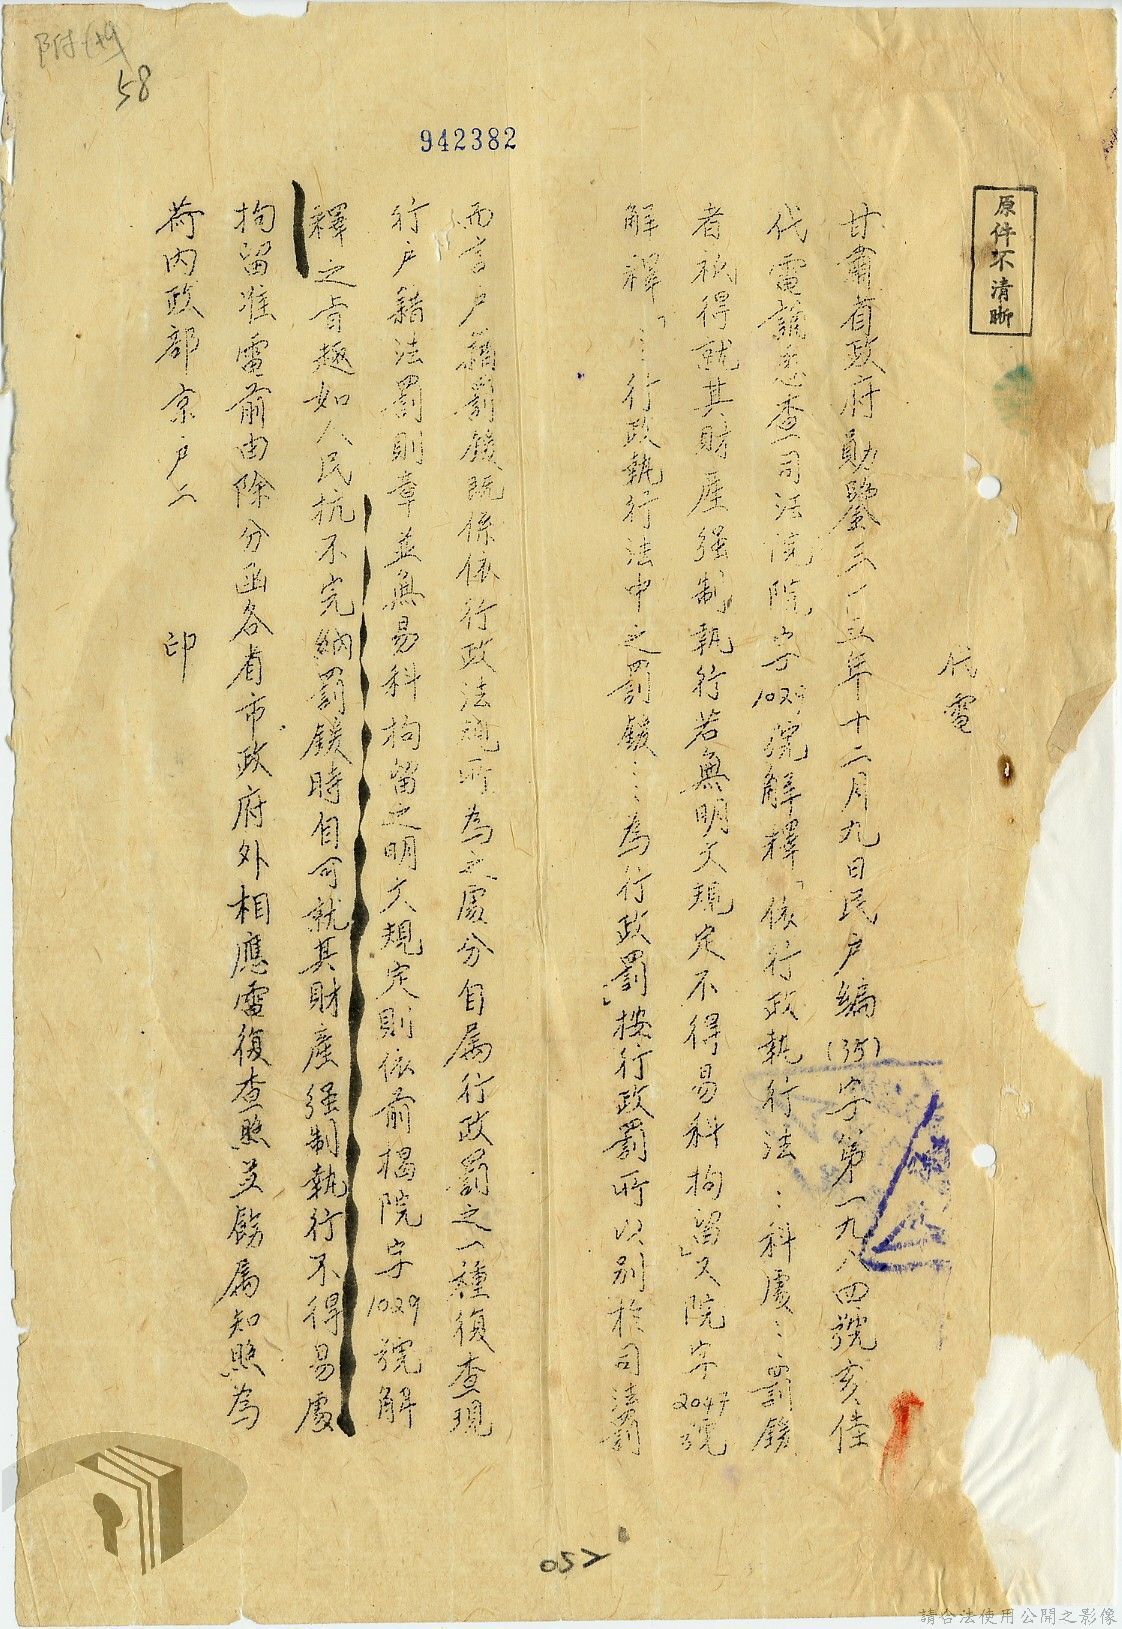 附件
58
942382
原件不清晰
代電
甘肅省政府勛鑒三十五年十二月九日民戶編(35)字第一九八四號亥佳
代電誦悉查司法院院字1029號解釋「依行政執行法…科處…罰鍰
者祇得就其財產強制執行若無明文規定不得易科拘留」又院字2047號
解釋「…行政執行法中之罰鍰…為行政罰」按行政罰所以別於司法罰
而言戶籍罰鍰既係依行政法規所為之處分自屬行政罰之一種復查現
行戶籍法罰則章並無易科拘留之明文規定則依前揭院字1029號解
釋之旨趣如人民抗不完納罰鍰時自可就其財產強制執行不得易處
拘留准電前由除分函各省市政府外相應電復查照並飭屬知照為
荷內政部京戶二　印
052
請合法使用公開之影像